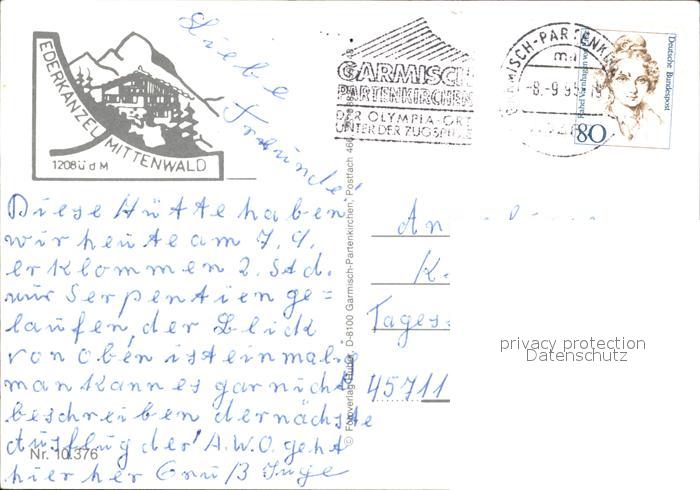 EDERKANZEL MITTENWALD
1208 ü d M
Liebe
Freunde!
Diese Hütte haben
wir heute am 7. 9.
erklommen 2. Std.
nur Serpentien ge=
laufen, der Blick
von oben ist einmalig
man kann es gar nicht
beschreiben der nächste
Ausflug der A.W.O. geht
hierher Gruß Inge
Nr. 10.376
GARMISCH
PARTENKIRCHEN
DER OLYMPIA-ORT
UNTER DER ZUGSPITZE
GARMISCH-PARTENKI
-8.-9.95-19
Deutsche Bundespost
Rahel Varnhagen von Ense
80
© Fotoverlag Huber, D-8100 Garmisch-Partenkirchen, Postfach 46
An
K.
Tages
45711
privacy protection
Datenschutz